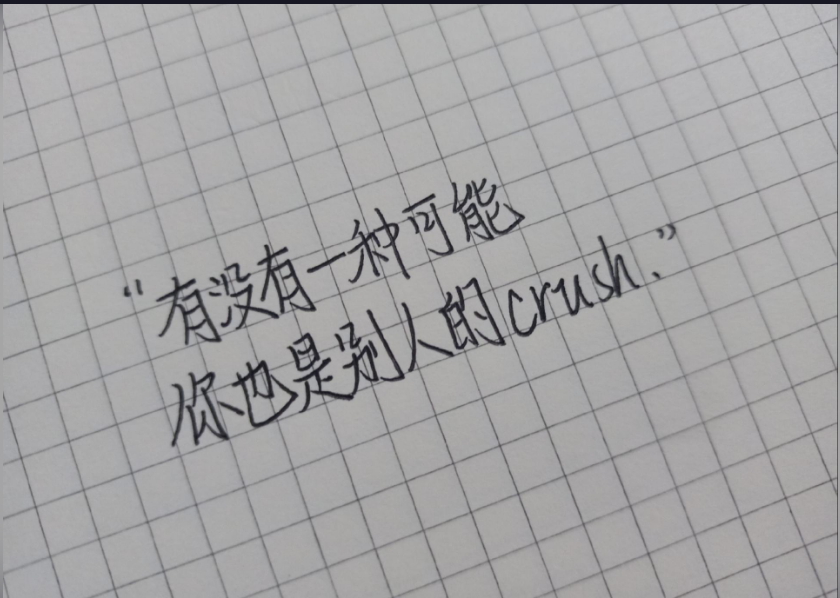 “有没有一种可能
你也是别人的crush.”